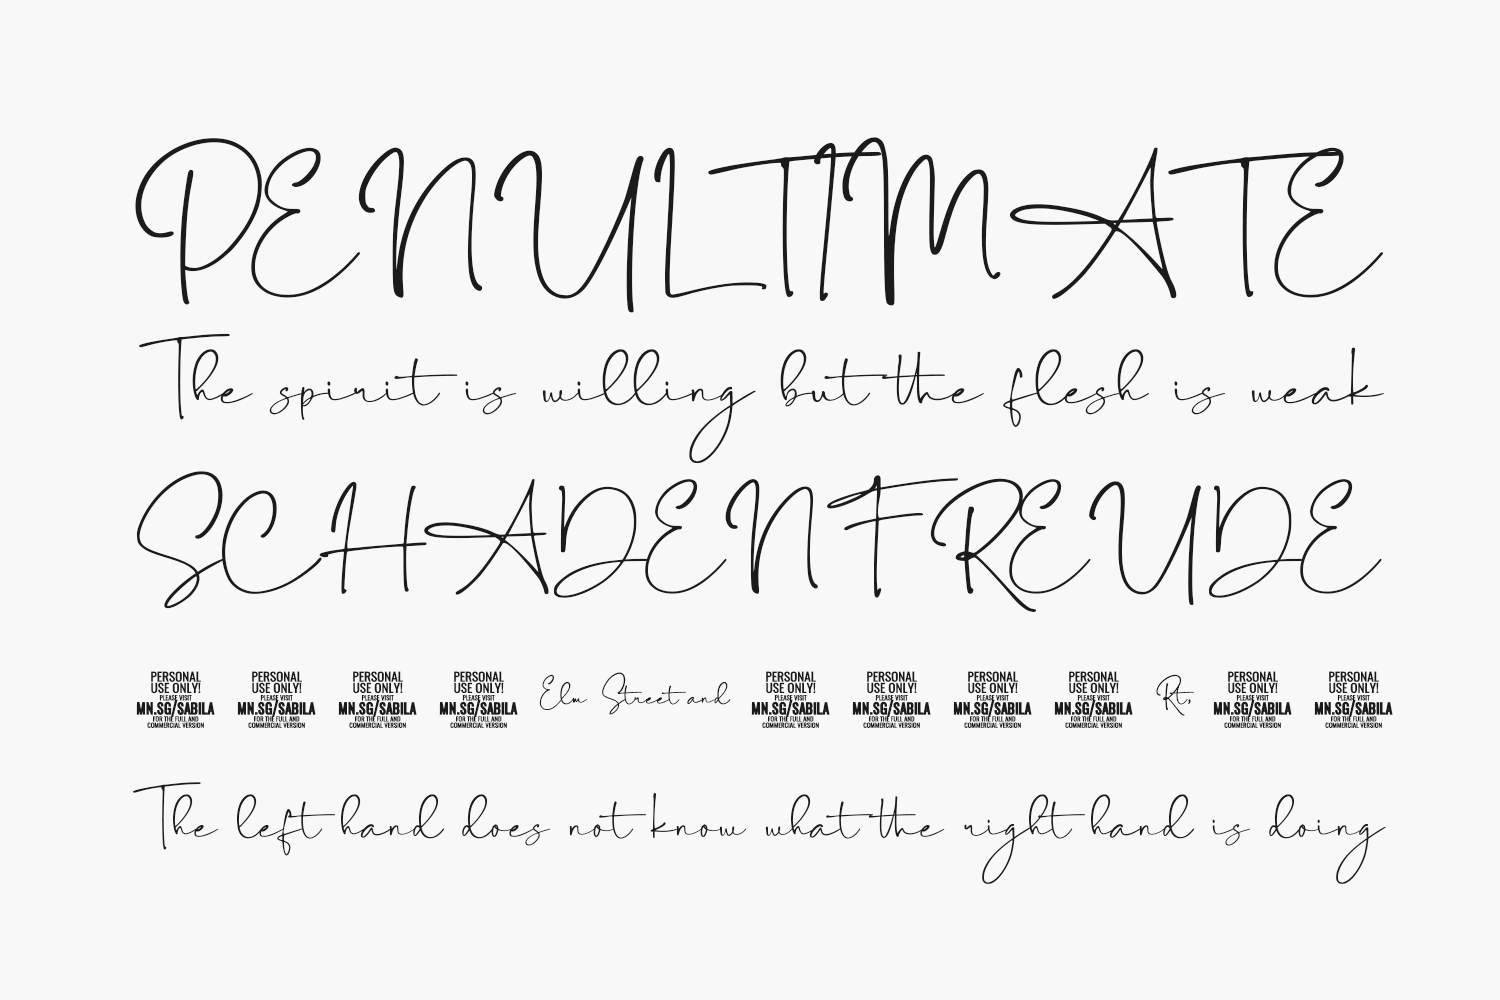 PENULTIMATE
The spirit is willing but the flesh is weak
SCHADENFREUDE
PERSONAL USE ONLY! PLEASE VISIT MN.SG/SABILA FOR THE FULL AND COMMERCIAL VERSION PERSONAL USE ONLY! PLEASE VISIT MN.SG/SABILA FOR THE FULL AND COMMERCIAL VERSION PERSONAL USE ONLY! PLEASE VISIT MN.SG/SABILA FOR THE FULL AND COMMERCIAL VERSION PERSONAL USE ONLY! PLEASE VISIT MN.SG/SABILA FOR THE FULL AND COMMERCIAL VERSION Elm Street and PERSONAL USE ONLY! PLEASE VISIT MN.SG/SABILA FOR THE FULL AND COMMERCIAL VERSION PERSONAL USE ONLY! PLEASE VISIT MN.SG/SABILA FOR THE FULL AND COMMERCIAL VERSION PERSONAL USE ONLY! PLEASE VISIT MN.SG/SABILA FOR THE FULL AND COMMERCIAL VERSION PERSONAL USE ONLY! PLEASE VISIT MN.SG/SABILA FOR THE FULL AND COMMERCIAL VERSION Rt, PERSONAL USE ONLY! PLEASE VISIT MN.SG/SABILA FOR THE FULL AND COMMERCIAL VERSION PERSONAL USE ONLY! PLEASE VISIT MN.SG/SABILA FOR THE FULL AND COMMERCIAL VERSION
The left hand does not know what the right hand is doing